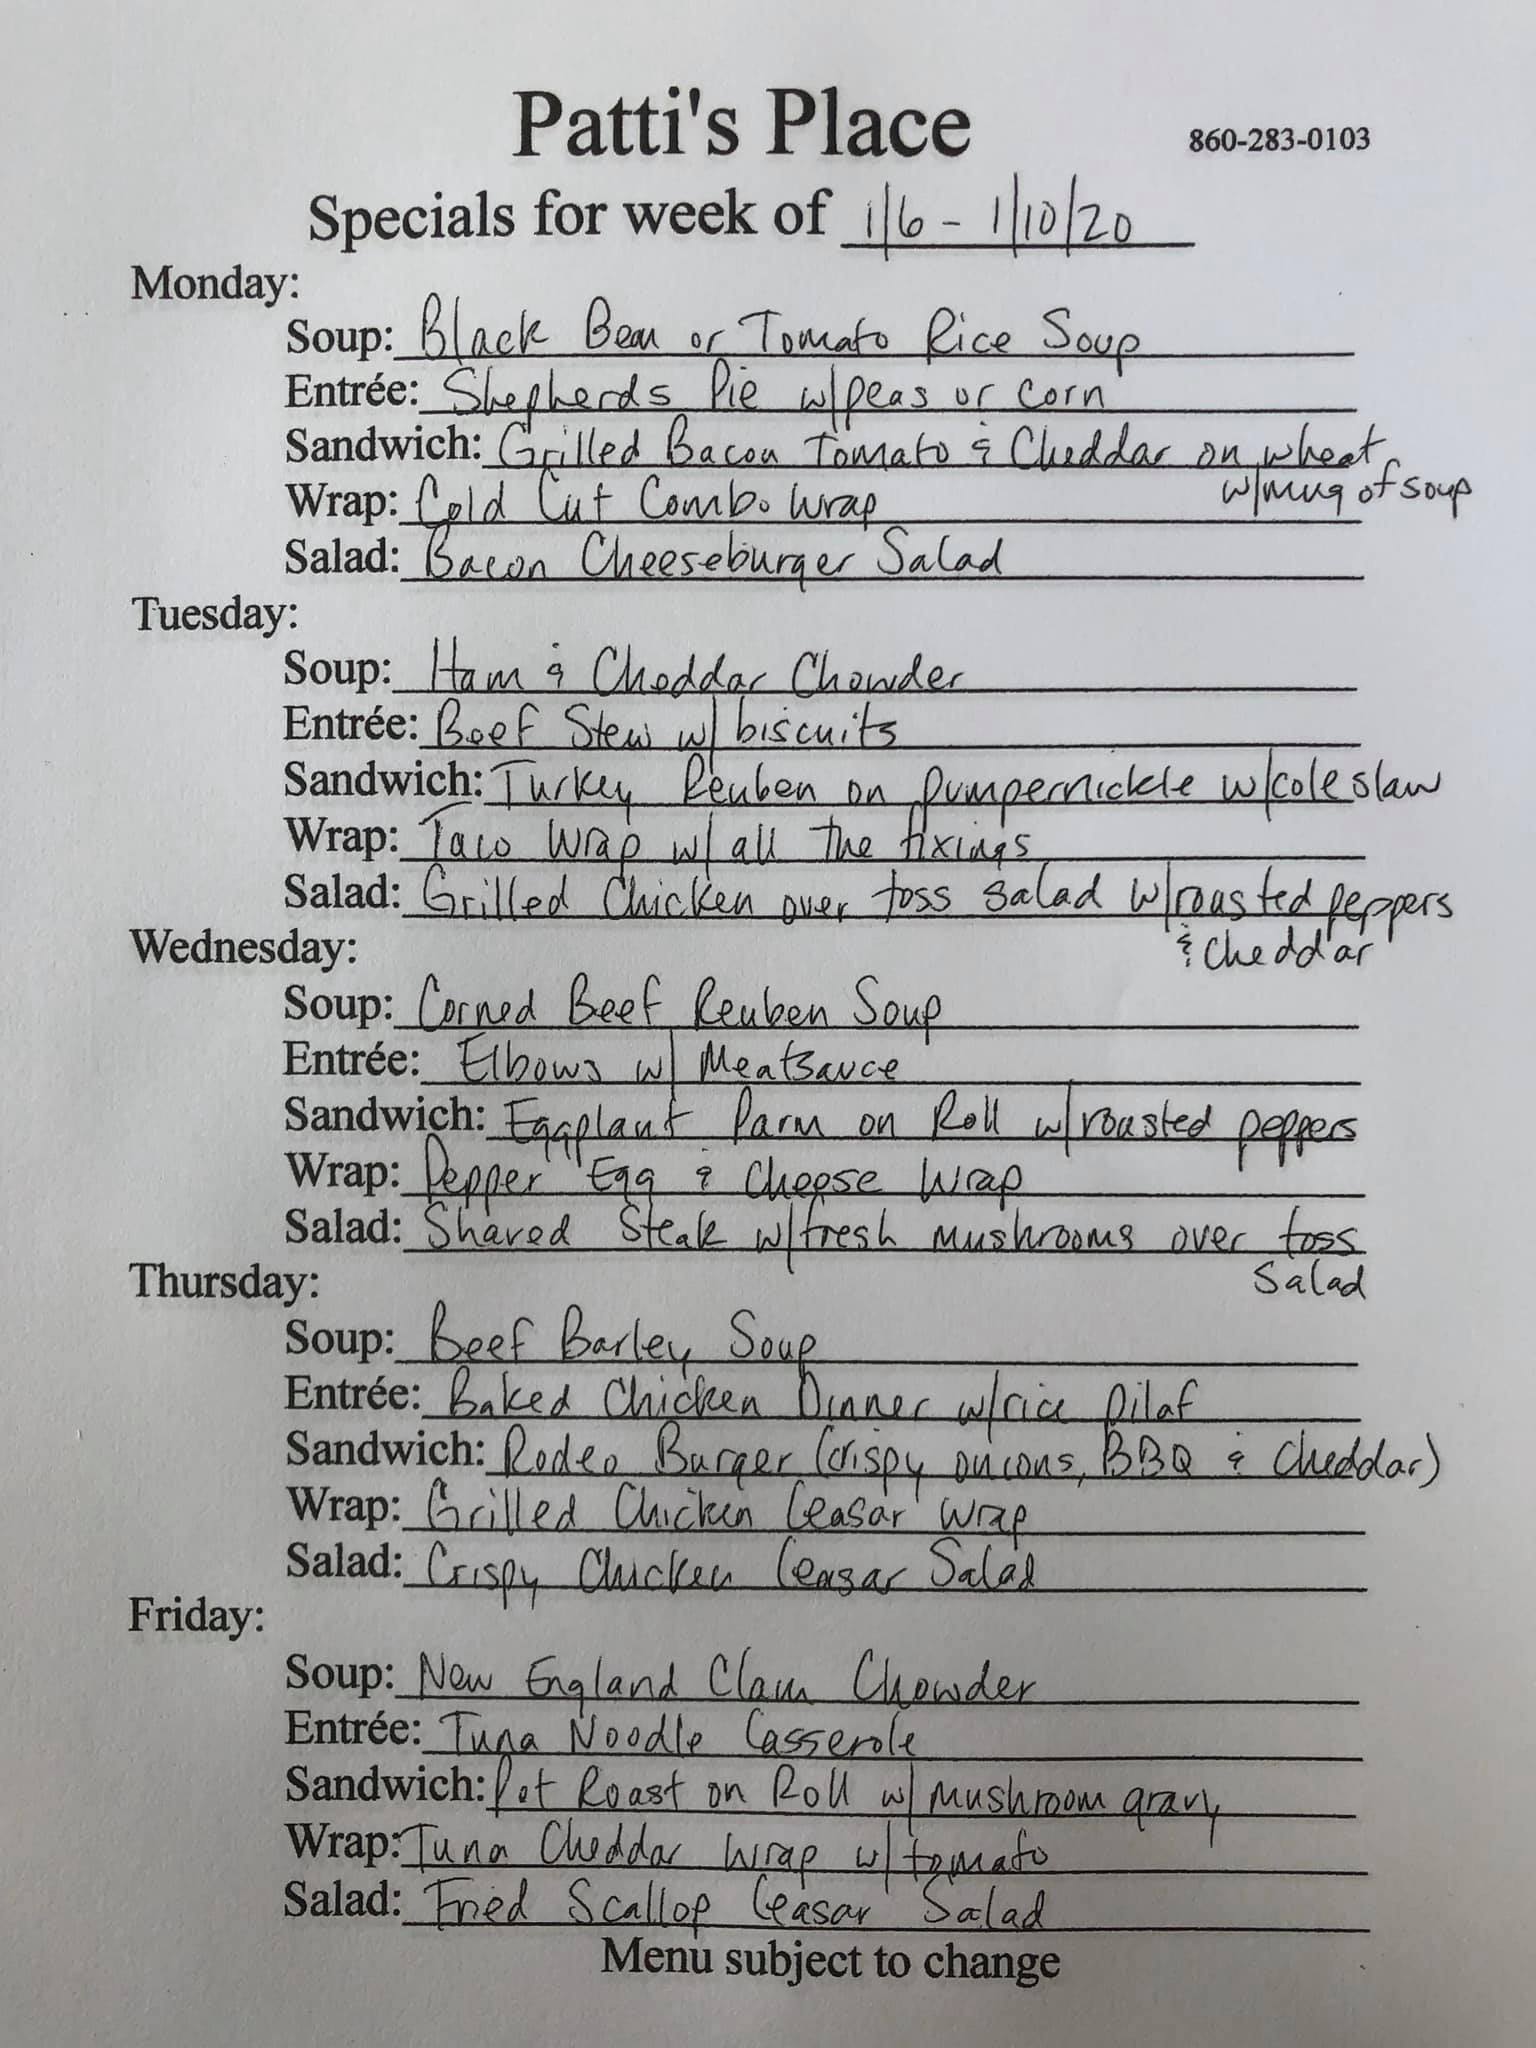 Patti's Place
860-283-0103
Specials for week of 1/6 - 1/10/20
Monday:
Soup: Black Bean or Tomato Rice Soup
Entrée: Shepherds Pie w/peas or corn
Sandwich: Grilled Bacon Tomato & Cheddar on wheat
w/mug of soup
Wrap: Cold Cut Combo Wrap
Salad: Bacon Cheeseburger Salad
Tuesday:
Soup: Ham & Cheddar Chowder
Entrée: Beef Stew w/ biscuits
Sandwich: Turkey Reuben on pumpernickle w/coleslaw
Wrap: Taco Wrap w/ all the fixings
Salad: Grilled Chicken over toss salad w/roasted peppers
& cheddar
Wednesday:
Soup: Corned Beef Reuben Soup
Entrée: Elbows w/ Meatsauce
Sandwich: Eggplant Parm on Roll w/roasted peppers
Wrap: Pepper Egg & Cheese Wrap
Salad: Shaved Steak w/fresh mushrooms over toss
Salad
Thursday:
Soup: Beef Barley Soup
Entrée: Baked Chicken Dinner w/rice pilaf
Sandwich: Rodeo Burger (crispy onions, BBQ & cheddar)
Wrap: Grilled Chicken Ceasar Wrap
Salad: Crispy Chicken Ceasar Salad
Friday:
Soup: New England Clam Chowder
Entrée: Tuna Noodle Casserole
Sandwich: Pot Roast on Roll w/ mushroom gravy
Wrap: Tuna Cheddar Wrap w/ tomato
Salad: Fried Scallop Ceasar Salad
Menu subject to change